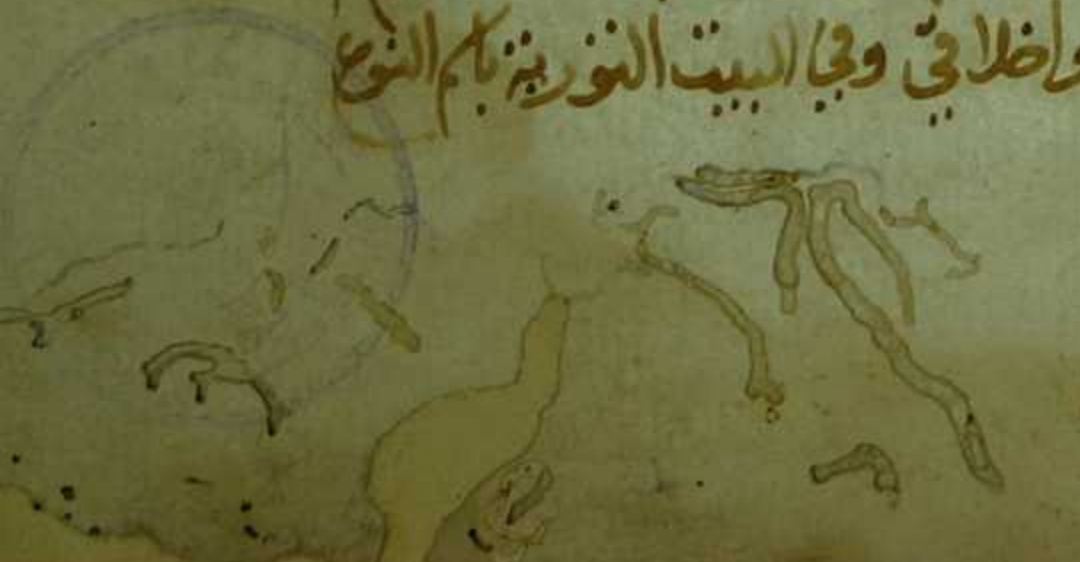 واخلاقي وفي البيت التورية باسم النوع